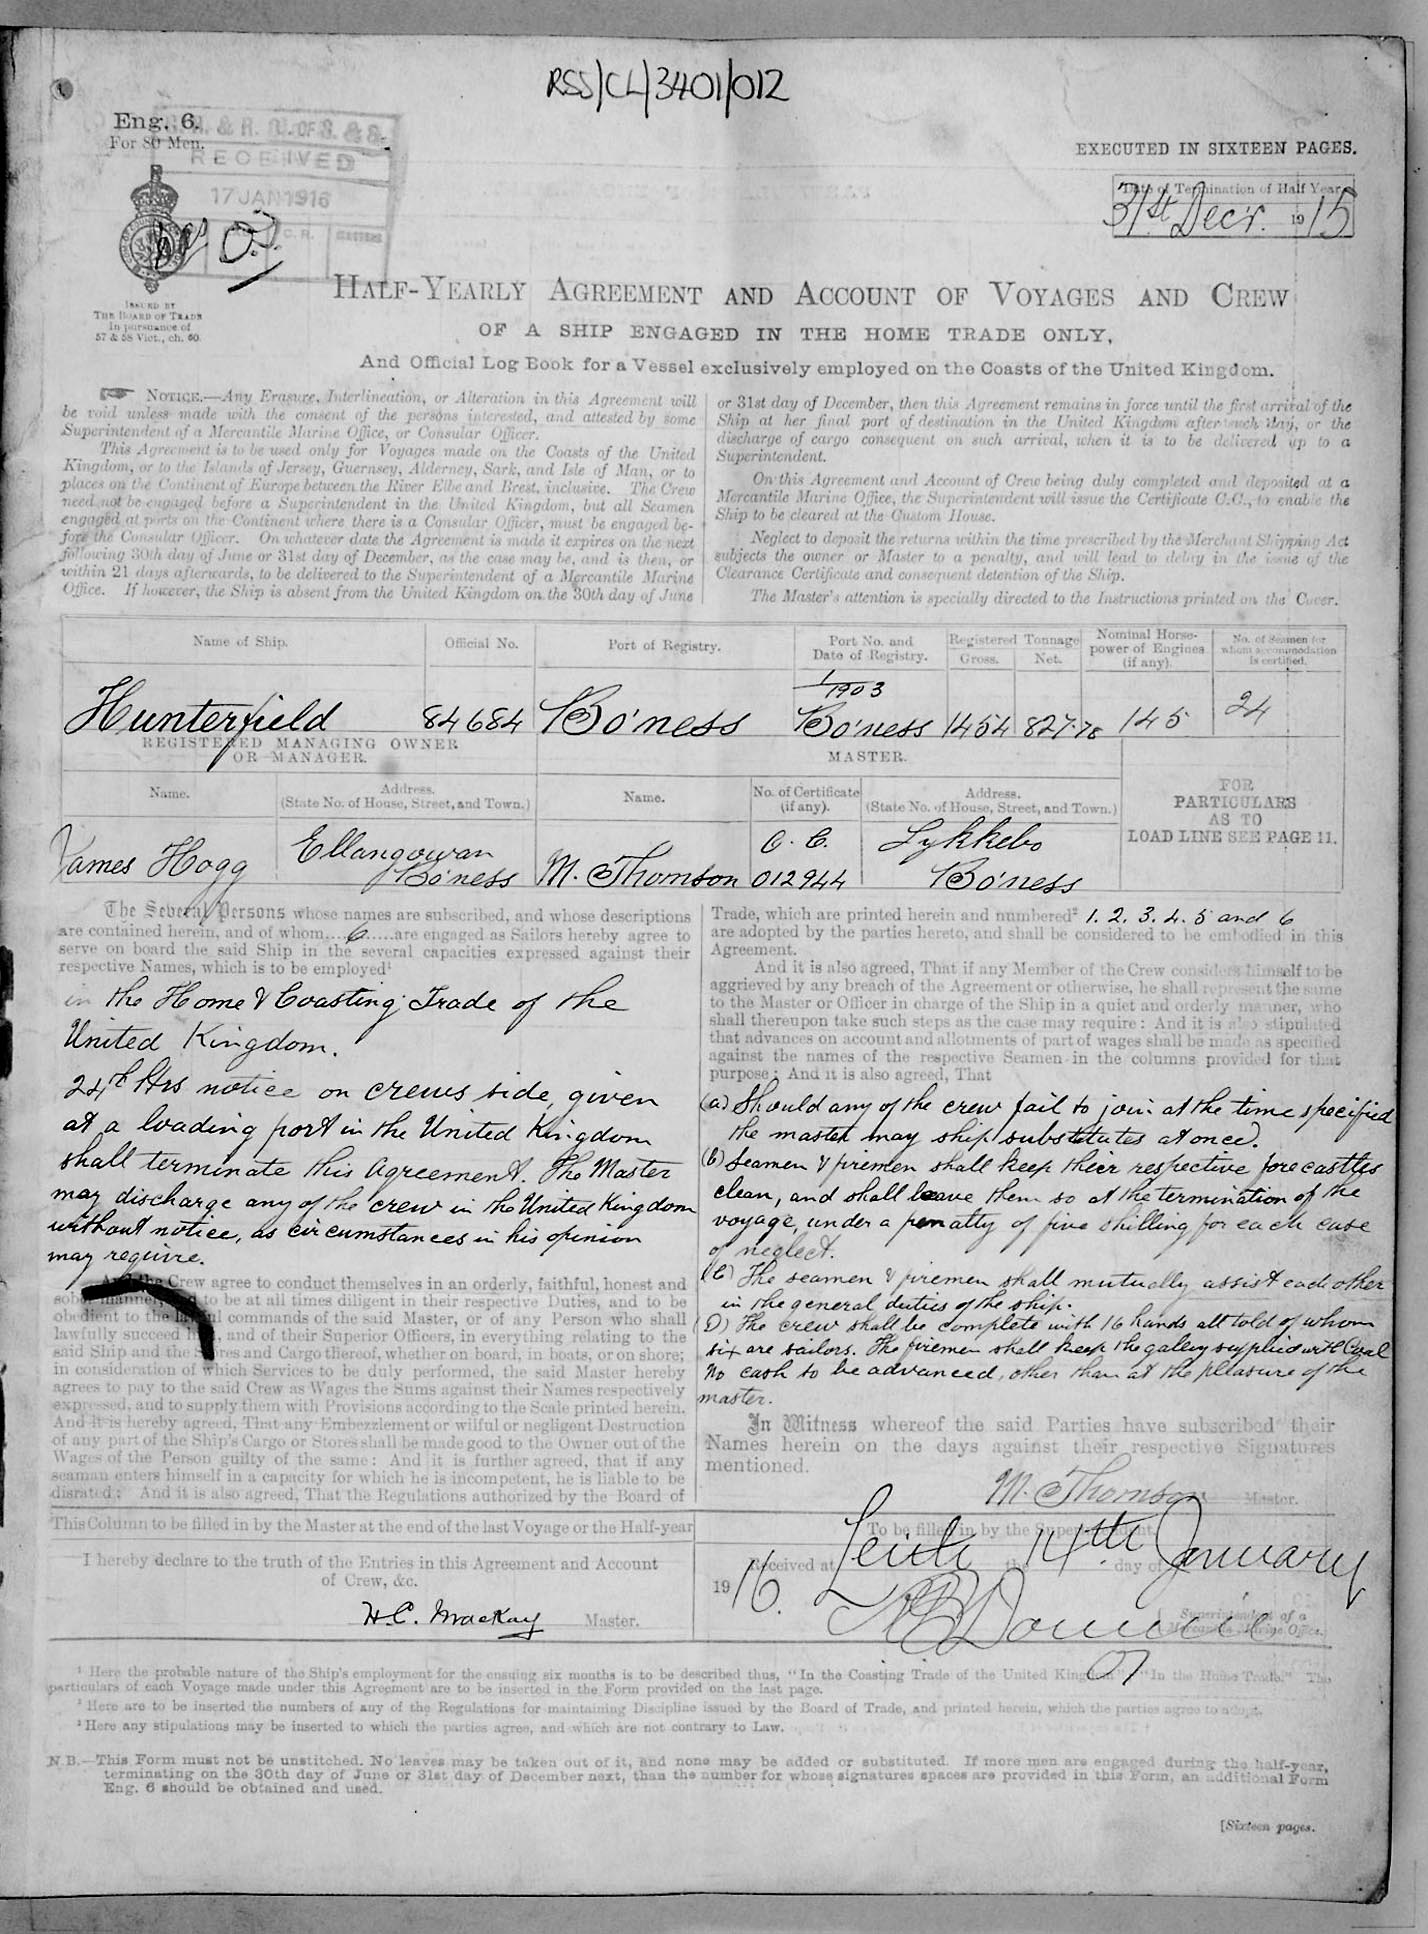 RSS/CL/3401/012
Eng. 6.
For 80 Men.
& R. G. OF S. & S.
RECEIVED
17 JAN 1916
C.R.
MASTERS
EXECUTED IN SIXTEEN PAGES.
Date of Termination of Half Year
31st Decr. 1915
ISSUED BY
THE BOARD OF TRADE
In pursuance of
57 & 58 Vict., ch. 60.
HALF-YEARLY AGREEMENT AND ACCOUNT OF VOYAGES AND CREW
OF A SHIP ENGAGED IN THE HOME TRADE ONLY,
And Official Log Book for a Vessel exclusively employed on the Coasts of the United Kingdom.
NOTICE.—Any Erasure, Interlineation, or Alteration in this Agreement will
be void unless made with the consent of the persons interested, and attested by some
Superintendent of a Mercantile Marine Office, or Consular Officer.
This Agreement is to be used only for Voyages made on the Coasts of the United
Kingdom, or to the Islands of Jersey, Guernsey, Alderney, Sark, and Isle of Man, or to
places on the Continent of Europe between the River Elbe and Brest, inclusive. The Crew
need not be engaged before a Superintendent in the United Kingdom, but all Seamen
engaged at ports on the Continent where there is a Consular Officer, must be engaged be-
fore the Consular Officer. On whatever date the Agreement is made it expires on the next
following 30th day of June or 31st day of December, as the case may be, and is then, or
within 21 days afterwards, to be delivered to the Superintendent of a Mercantile Marine
Office. If however, the Ship is absent from the United Kingdom on the 30th day of June
or 31st day of December, then this Agreement remains in force until the first arrival of the
Ship at her final port of destination in the United Kingdom after such day, or the
discharge of cargo consequent on such arrival, when it is to be delivered up to a
Superintendent.
On this Agreement and Account of Crew being duly completed and deposited at a
Mercantile Marine Office, the Superintendent will issue the Certificate C.C., to enable the
Ship to be cleared at the Custom House.
Neglect to deposit the returns within the time prescribed by the Merchant Shipping Act
subjects the owner or Master to a penalty, and will lead to delay in the issue of the
Clearance Certificate and consequent detention of the Ship.
The Master's attention is specially directed to the Instructions printed on the Cover.
Name of Ship. Official No. Port of Registry. Port No. and Date of Registry. Registered Tonnage Gross. Net. Nominal Horse-power of Engines (if any). No. of Seamen for whom accommodation is certified.
1/1903
Hunterfield 84684 Bo'ness Bo'ness 1454 827.78 145 24
REGISTERED MANAGING OWNER
OR MANAGER.
MASTER.
Name. Address. (State No. of House, Street, and Town.) Name. No. of Certificate (if any). Address. (State No. of House, Street, and Town.)
FOR
PARTICULARS
AS TO
LOAD LINE SEE PAGE 11.
Ellangowan C. C. Lykkebo
James Hogg Bo'ness M. Thomson 012944 Bo'ness
The Several Persons whose names are subscribed, and whose descriptions
are contained herein, and of whom 6 are engaged as Sailors hereby agree to
serve on board the said Ship in the several capacities expressed against their
respective Names, which is to be employed¹
in the Home & Coasting Trade of the
United Kingdom.
24 Hrs notice on crews side, given
at a loading port in the United Kingdom
shall terminate this Agreement. The Master
may discharge any of the crew in the United Kingdom
without notice, as circumstances in his opinion
may require.
And the Crew agree to conduct themselves in an orderly, faithful, honest and
sober manner, and to be at all times diligent in their respective Duties, and to be
obedient to the lawful commands of the said Master, or of any Person who shall
lawfully succeed him, and of their Superior Officers, in everything relating to the
said Ship and the Stores and Cargo thereof, whether on board, in boats, or on shore;
in consideration of which Services to be duly performed, the said Master hereby
agrees to pay to the said Crew as Wages the Sums against their Names respectively
expressed, and to supply them with Provisions according to the Scale printed herein.
And it is hereby agreed, That any Embezzlement or wilful or negligent Destruction
of any part of the Ship's Cargo or Stores shall be made good to the Owner out of the
Wages of the Person guilty of the same: And it is further agreed, that if any
seaman enters himself in a capacity for which he is incompetent, he is liable to be
disrated: And it is also agreed, That the Regulations authorized by the Board of
Trade, which are printed herein and numbered² 1. 2. 3. 4. 5 and 6
are adopted by the parties hereto, and shall be considered to be embodied in this
Agreement.
And it is also agreed, That if any Member of the Crew considers himself to be
aggrieved by any breach of the Agreement or otherwise, he shall represent the same
to the Master or Officer in charge of the Ship in a quiet and orderly manner, who
shall thereupon take such steps as the case may require: And it is also stipulated
that advances on account and allotments of part of wages shall be made as specified
against the names of the respective Seamen in the columns provided for that
purpose: And it is also agreed, That
(a) Should any of the crew fail to join at the time specified
the master may ship substitutes at once.
(b) Seamen & firemen shall keep their respective forecastles
clean, and shall leave them so at the termination of the
voyage, under a penalty of five shilling for each case
of neglect.
(C) The seamen & firemen shall mutually assist each other
in the general duties of the ship.
(D) The crew shall be complete with 16 hands all told of whom
six are sailors. The firemen shall keep the galley supplied with Coal
No cash to be advanced, other than at the pleasure of the
master.
In Witness whereof the said Parties have subscribed their
Names herein on the days against their respective Signatures
mentioned.
M. Thomson Master.
This Column to be filled in by the Master at the end of the last Voyage or the Half-year
I hereby declare to the truth of the Entries in this Agreement and Account
of Crew, &c.
H.C. MacKay Master.
To be filled in by the Superintendent.
Received at Leith the 14th day of January
1916.
Superintendent of a
Mercantile Marine Office.
¹ Here the probable nature of the Ship's employment for the ensuing six months is to be described thus, "In the Coasting Trade of the United Kingdom" "In the Home Trade." The
particulars of each Voyage made under this Agreement are to be inserted in the Form provided on the last page.
² Here are to be inserted the numbers of any of the Regulations for maintaining Discipline issued by the Board of Trade, and printed herein, which the parties agree to adopt.
³ Here any stipulations may be inserted to which the parties agree, and which are not contrary to Law.
N.B.—This Form must not be unstitched. No leaves may be taken out of it, and none may be added or substituted. If more men are engaged during the half-year,
terminating on the 30th day of June or 31st day of December next, than the number for whose signatures spaces are provided in this Form, an additional Form
Eng. 6 should be obtained and used.
[Sixteen pages.